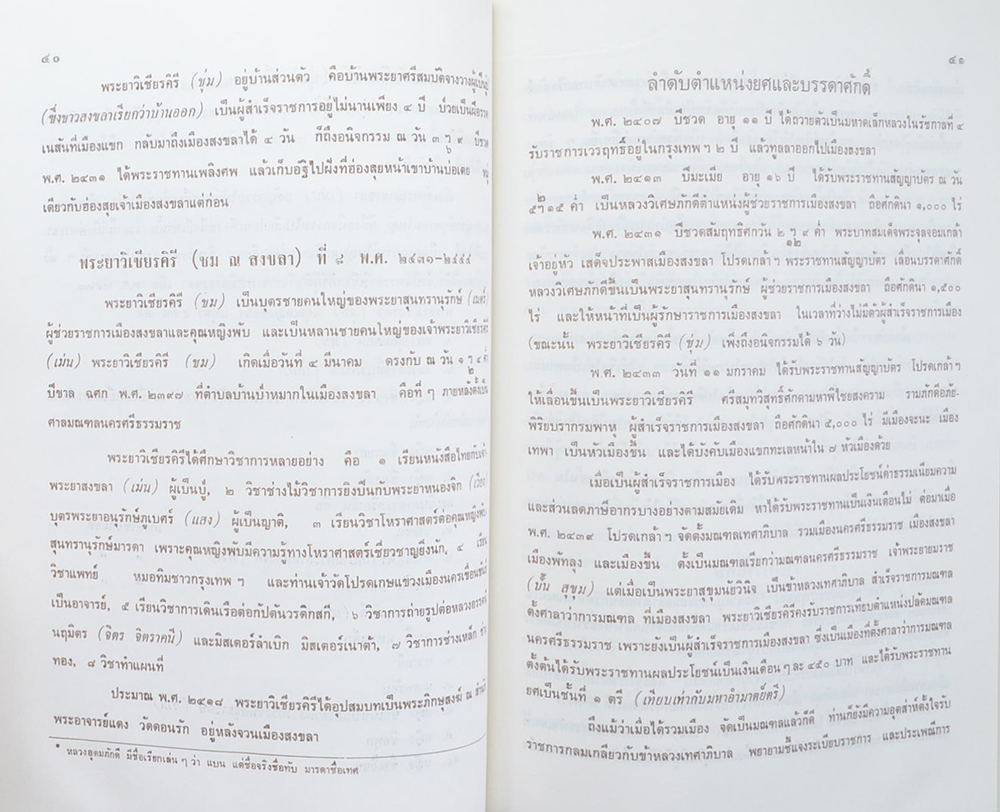 ๔๐
พระยาวิเชียรคิรี (ชุ่ม) อยู่บ้านส่วนตัว คือบ้านพระยาศรีสมบัติจางวางผู้เป็นปู่
(ซึ่งชาวสงขลาเรียกว่าบ้านออก) เป็นผู้สำเร็จราชการอยู่ไม่นานเพียง ๔ ปี ป่วยเป็นฝีอรรค
เนสันที่เมืองแขก กลับมาถึงเมืองสงขลาได้ ๔ วัน ก็ถึงอนิจกรรม ณ วัน ๓ ๖ ๙ ปีชวด
พ.ศ. ๒๔๓๑ ได้พระราชทานเพลิงศพ แล้วเก็บอัฐิไปฝังที่ฮ่องสุยหน้าเขาบ้านบ่อเตย หมู่
เดียวกับฮ่องสุยเจ้าเมืองสงขลาแต่ก่อน
พระยาวิเชียรคิรี (ชม ณ สงขลา) ที่ ๘ พ.ศ. ๒๔๓๑-๒๔๔๔
พระยาวิเชียรคิรี (ชม) เป็นบุตรชายคนใหญ่ของพระยาสุนทรานุรักษ์ (เนตร)
ผู้ช่วยราชการเมืองสงขลาและคุณหญิงพับ และเป็นหลานชายคนใหญ่ของเจ้าพระยาวิเชียรคิรี
(เม่น) พระยาวิเชียรคิรี (ชม) เกิดเมื่อวันที่ ๔ มีนาคม ตรงกับ ณ วัน ๑ ๒ ๔ ค่ำ
ปีขาล ฉศก พ.ศ. ๒๓๙๗ ที่ตำบลบ้านป่าหมากในเมืองสงขลา คือที่ ๆ ภายหลังตั้งเป็น
ศาลมณฑลนครศรีธรรมราช
พระยาวิเชียรคิรีได้ศึกษาวิชาการหลายอย่าง คือ ๑ เรียนหนังสือไทยกับเจ้า
พระยาสงขลา (เม่น) ผู้เป็นปู่, ๒ วิชาช่างไม้วิชาการยิงปืนกับพระยาหนองจิก (เวียง)
บุตรพระยาอนุรักษ์ภูเบศร์ (แสง) ผู้เป็นญาติ, ๓ เรียนวิชาโหราศาสตร์ต่อคุณหญิงพับ
สุนทรานุรักษ์มารดา เพราะคุณหญิงพับมีความรู้ทางโหราศาสตร์เชี่ยวชาญยิ่งนัก, ๔ เรียน
วิชาแพทย์ หมอทิมชาวกรุงเทพ ฯ และท่านเจ้าวัดโปรดเกษแขวงเมืองนครเขื่อนขันธ์
เป็นอาจารย์, ๕ เรียนวิชาการเดินเรือต่อกัปตันวรดิกสกี, ๖ วิชาการถ่ายรูปต่อหลวงอรรคนี
นฤมิตร (จิตร จิตราคนี) และมิสเตอร์ลำเบิก มิสเตอร์เนาต้า, ๗ วิชาการช่างเหล็ก ช่าง
ทอง, ๘ วิชาทำแผนที่
ประมาณ พ.ศ. ๒๔๑๘ พระยาวิเชียรคิรีได้อุปสมบทเป็นพระภิกษุสงฆ์ ณ สำนัก
พระอาจารย์แดง วัดดอนรัก อยู่หลังจวนเมืองสงขลา
* หลวงอุดมภักดี มีชื่อเรียกเล่น ๆ ว่า แบน แต่ชื่อจริงชื่อทับ มารดาชื่อเทศ
๔๑
ลำดับตำแหน่งยศและบรรดาศักดิ์
พ.ศ. ๒๔๐๗ ปีชวด อายุ ๑๑ ปี ได้ถวายตัวเป็นมหาดเล็กหลวงในรัชกาลที่ ๔
รับราชการเวรฤทธิ์อยู่ในกรุงเทพ ฯ ๒ ปี แล้วทูลลาออกไปเมืองสงขลา
พ.ศ. ๒๔๑๓ ปีมะเมีย อายุ ๑๖ ปี ได้รับพระราชทานสัญญาบัตร ณ วัน
๕ ๒ ๑๕ ค่ำ เป็นหลวงวิเศษภักดีตำแหน่งผู้ช่วยราชการเมืองสงขลา ถือศักดินา ๑,๐๐๐ ไร่
พ.ศ. ๒๔๓๑ ปีชวดสัมฤทธิศกวัน ๒ ๑๒ ๙ ค่ำ พระบาทสมเด็จพระจุลจอมเกล้า
เจ้าอยู่หัว เสด็จประพาสเมืองสงขลา โปรดเกล้า ฯ พระราชทานสัญญาบัตร เลื่อนบรรดาศักดิ์
หลวงวิเศษภักดีขึ้นเป็นพระยาสุนทรานุรักษ์ ผู้ช่วยราชการเมืองสงขลา ถือศักดินา ๑,๕๐๐
ไร่ และให้หน้าที่เป็นผู้รักษาราชการเมืองสงขลา ในเวลาที่ว่างไม่มีตัวผู้สำเร็จราชการเมือง
(ขณะนั้น พระยาวิเชียรคิรี (ชุ่ม) เพิ่งถึงอนิจกรรมได้ ๖ วัน)
พ.ศ. ๒๔๓๓ วันที่ ๑๑ มกราคม ได้รับพระราชทานสัญญาบัตร โปรดเกล้า ฯ
ให้เลื่อนขึ้นเป็นพระยาวิเชียรคิรี ศรีสมุทวิสุทธิ์ศักดามหาพิไชยสงคราม รามภักดีอภัย-
พิริยบรากรมพาหุ ผู้สำเร็จราชการเมืองสงขลา ถือศักดินา ๕,๐๐๐ ไร่ มีเมืองจะนะ เมือง
เทพา เป็นหัวเมืองขึ้น และได้บังคับเมืองแขกทะเลหน้าใน ๗ หัวเมืองด้วย
เมื่อเป็นผู้สำเร็จราชการเมือง ได้รับพระราชทานผลประโยชน์ค่าธรรมเนียมความ
และส่วนลดภาษีอากรบางอย่างตามสมัยเดิม หาได้รับพระราชทานเป็นเงินเดือนไม่ ต่อมาเมื่อ
พ.ศ. ๒๔๓๙ โปรดเกล้า ฯ จัดตั้งมณฑลเทศาภิบาล รวมเมืองนครศรีธรรมราช เมืองสงขลา
เมืองพัทลุง และเมืองขึ้น ตั้งเป็นมณฑลเรียกว่ามณฑลนครศรีธรรมราช เจ้าพระยายมราช
(ปั้น สุขุม) แต่เมื่อเป็นพระยาสุขุมนัยวินิจ เป็นข้าหลวงเทศาภิบาล สำเร็จราชการมณฑล
ตั้งศาลาว่าการมณฑล ที่เมืองสงขลา พระยาวิเชียรคิรีคงรับราชการเทียบตำแหน่งปลัดมณฑล
นครศรีธรรมราช เพราะยังเป็นผู้สำเร็จราชการเมืองสงขลา ซึ่งเป็นเมืองที่ตั้งศาลาว่าการมณฑล
ตั้งต้นได้รับพระราชทานผลประโยชน์เป็นเงินเดือน ๆ ละ ๔๕๐ บาท และได้รับพระราชทาน
ยศเป็นชั้นที่ ๑ ตรี (เทียบเท่ากับมหาอำมาตย์ตรี)
ถึงแม้ว่าเมื่อได้รวมเมือง จัดเป็นมณฑลแล้วก็ดี ท่านก็ยังมีความอุตส่าห์ตั้งใจรับ
ราชการกลมเกลียวกับข้าหลวงเทศาภิบาล พยายามชี้แจงระเบียบราชการ และประเพณีการ